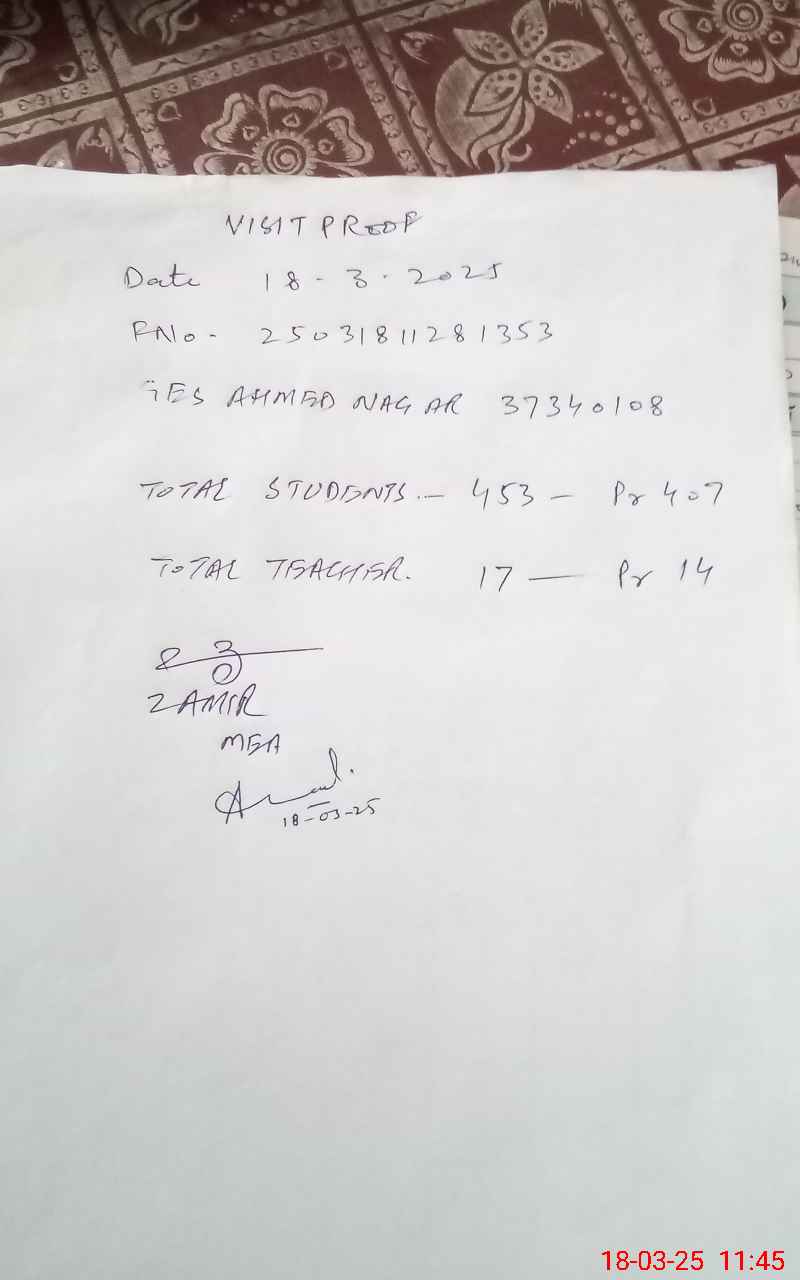 VISIT PROOF
Date 18-3-2025
RNo- 25031811281353
GES AHMED NAGAR 37340108
TOTAL STUDENTS.- 453 - Pr 407
TOTAL TEACHER. 17 - Pr 14
ZAMIR
MEA
18-03-25
18-03-25 11:45